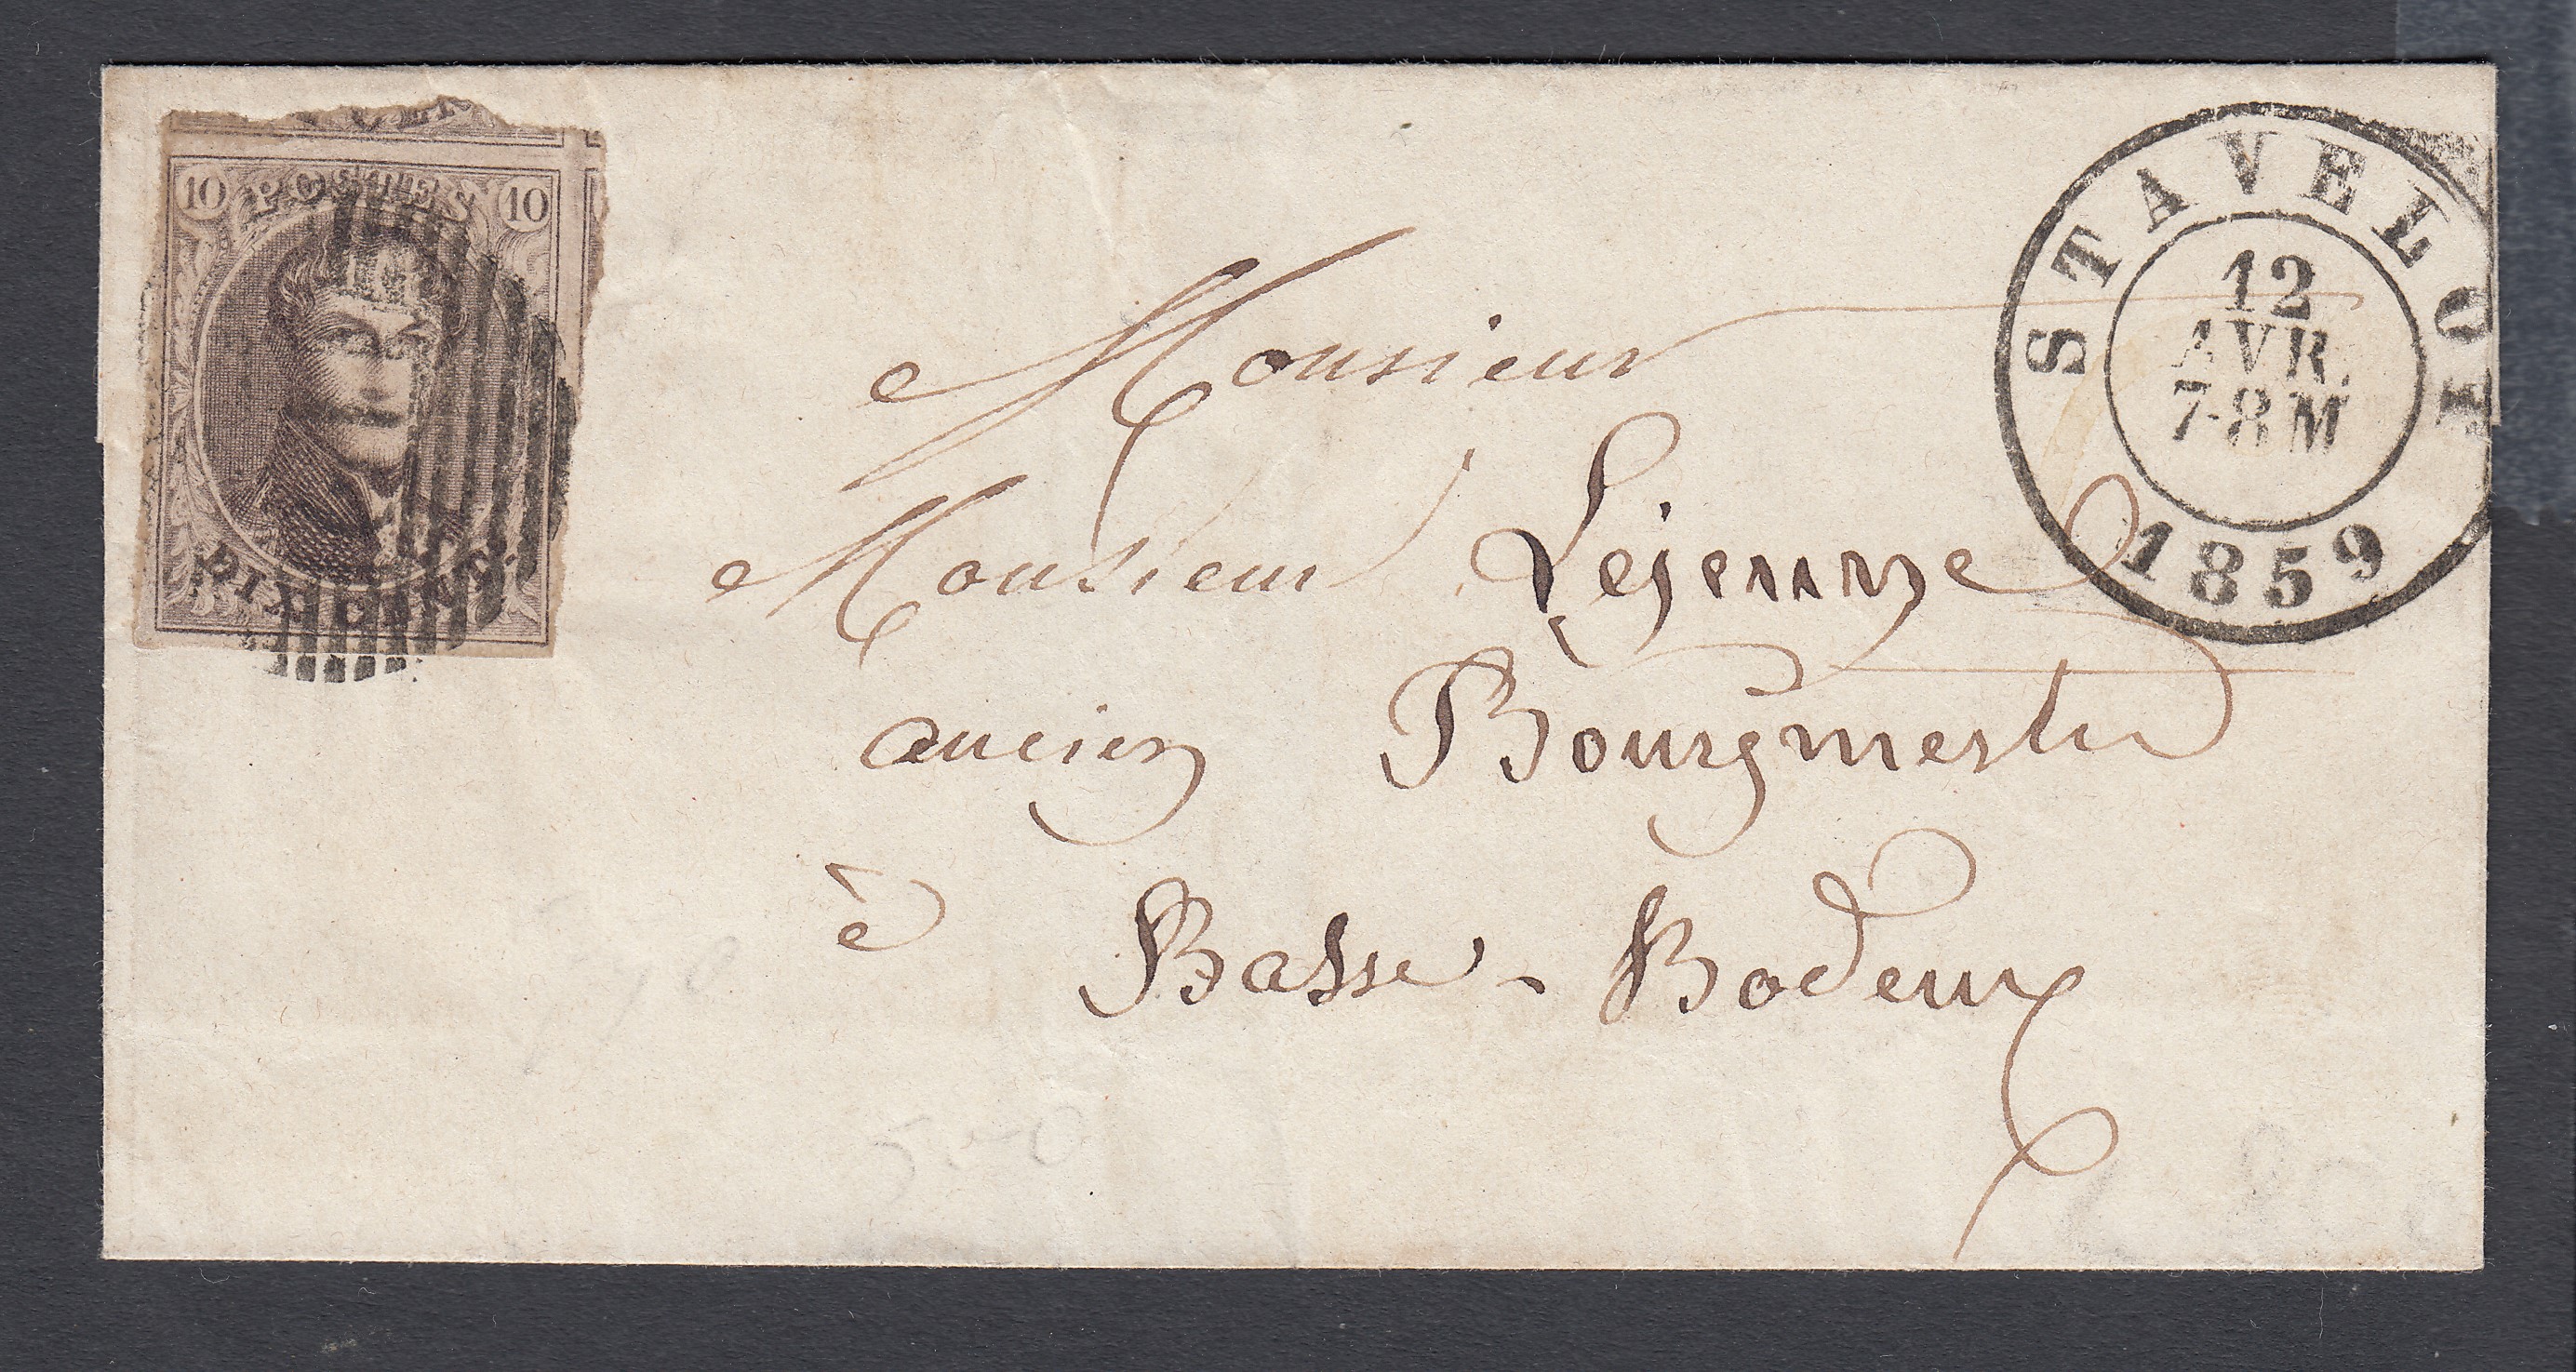 10 POSTES 10
DIX CENTS
STAVELOT
12
AVR.
7-8 M
1859
Monsieur
Monsieur Lejeune
ancien Bourgmestre
à Basse-Bodeux